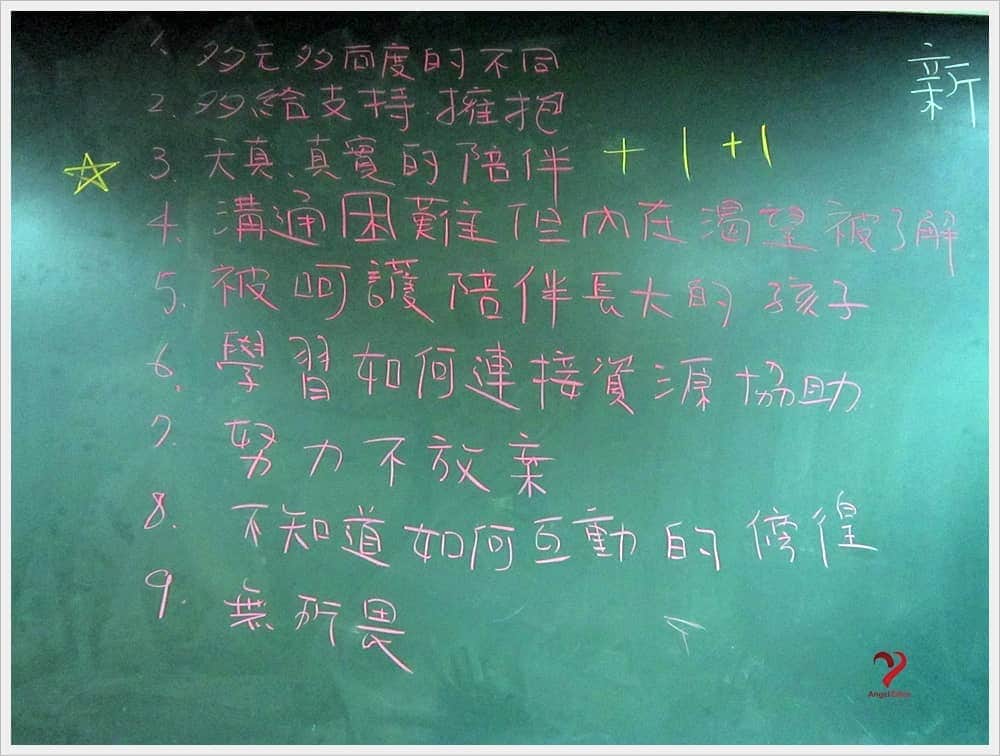 新
1. 多元多面度的不同
2. 多給支持.擁抱
3. 天真、真實的陪伴 + 1 + 1
4. 溝通困難但內在渴望被了解
5. 被呵護陪伴長大的孩子
6. 學習如何連接資源協助
7. 努力不放棄
8. 不知道如何互動的徬徨
9. 無所畏